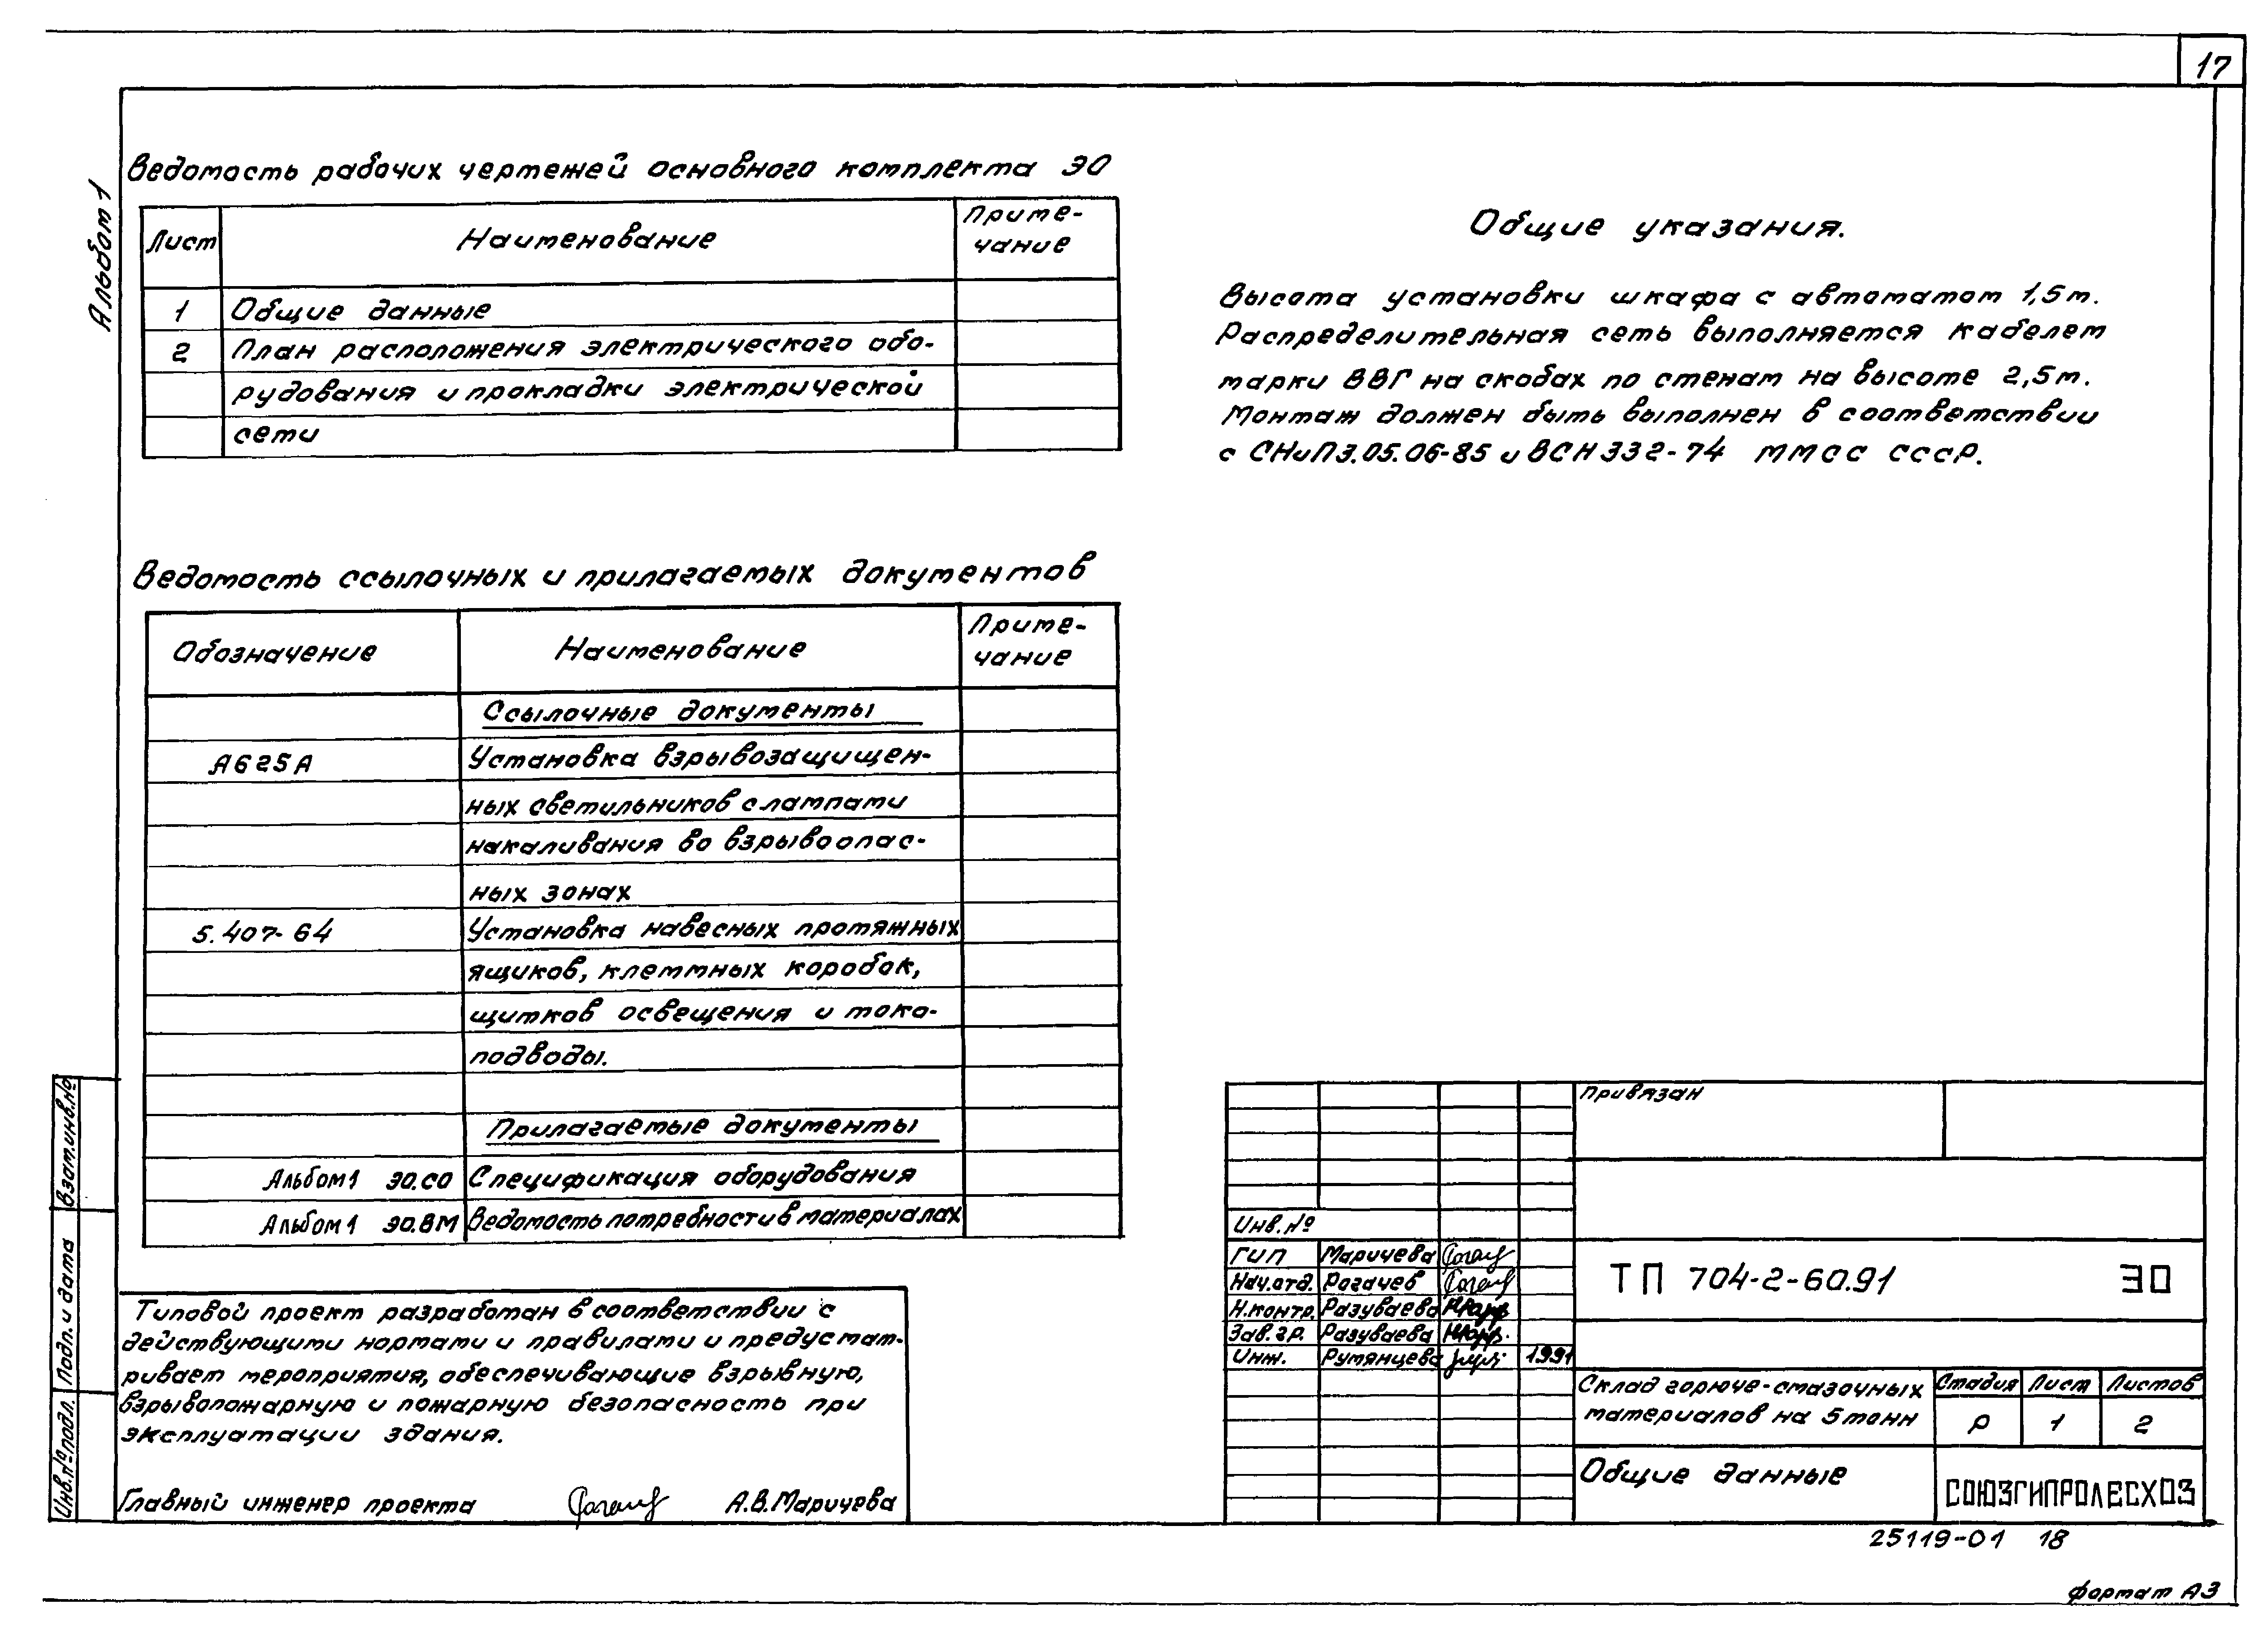 17
Альбом 1
Ведомость рабочих чертежей основного комплекта ЭО
Лист Наименование Приме-
чание
1 Общие данные
2 План расположения электрического обо-
рудования и прокладки электрической
сети
Ведомость ссылочных и прилагаемых документов
Обозначение Наименование Приме-
чание
Ссылочные документы
А625А Установка взрывозащищен-
ных светильников с лампами
накаливания во взрывоопас-
ных зонах
5.407-64 Установка навесных протяжных
ящиков, клеммных коробок,
щитков освещения и токо-
подводы.
Прилагаемые документы
Альбом 1 ЭО.СО Спецификация оборудования
Альбом 1 ЭО.ВМ Ведомость потребности в материалах
Типовой проект разработан в соответствии с
действующими нормами и правилами и предусмат-
ривает мероприятия, обеспечивающие взрывную,
взрывопожарную и пожарную безопасность при
эксплуатации здания.
Главный инженер проекта А.В.Маричева
Общие указания.
Высота установки шкафа с автоматом 1,5м.
Распределительная сеть выполняется кабелем
марки ВВГ на скобах по стенам на высоте 2,5м.
Монтаж должен быть выполнен в соответствии
с СНиП 3.05.06-85 и ВСН 332-74 ММСС СССР.
Привязан
Инв.№
ГИП Маричева
Нач.отд. Рогачев
Н.контр. Разуваева
Зав.гр. Разуваева
Инж. Румянцева 1991
ТП 704-2-60.91 ЭО
Склад горюче-смазочных
материалов на 5 тонн
Стадия Лист Листов
Р 1 2
Общие данные
СОЮЗГИПРОЛЕСХОЗ
25119-01 18
формат А3
Взам.инв.№
Подп. и дата
Инв.№ подл.